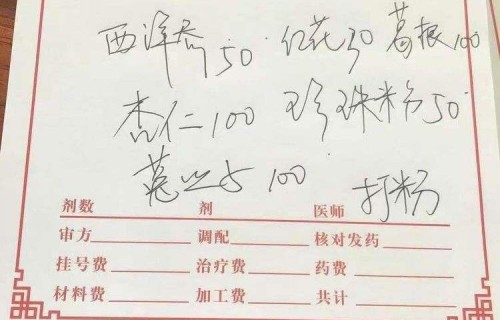 西洋参50 红花30 葛根100
杏仁100 珍珠粉50
100
打粉
剂数 剂 医师
审方 调配 核对发药
挂号费 治疗费 药费
材料费 加工费 共计